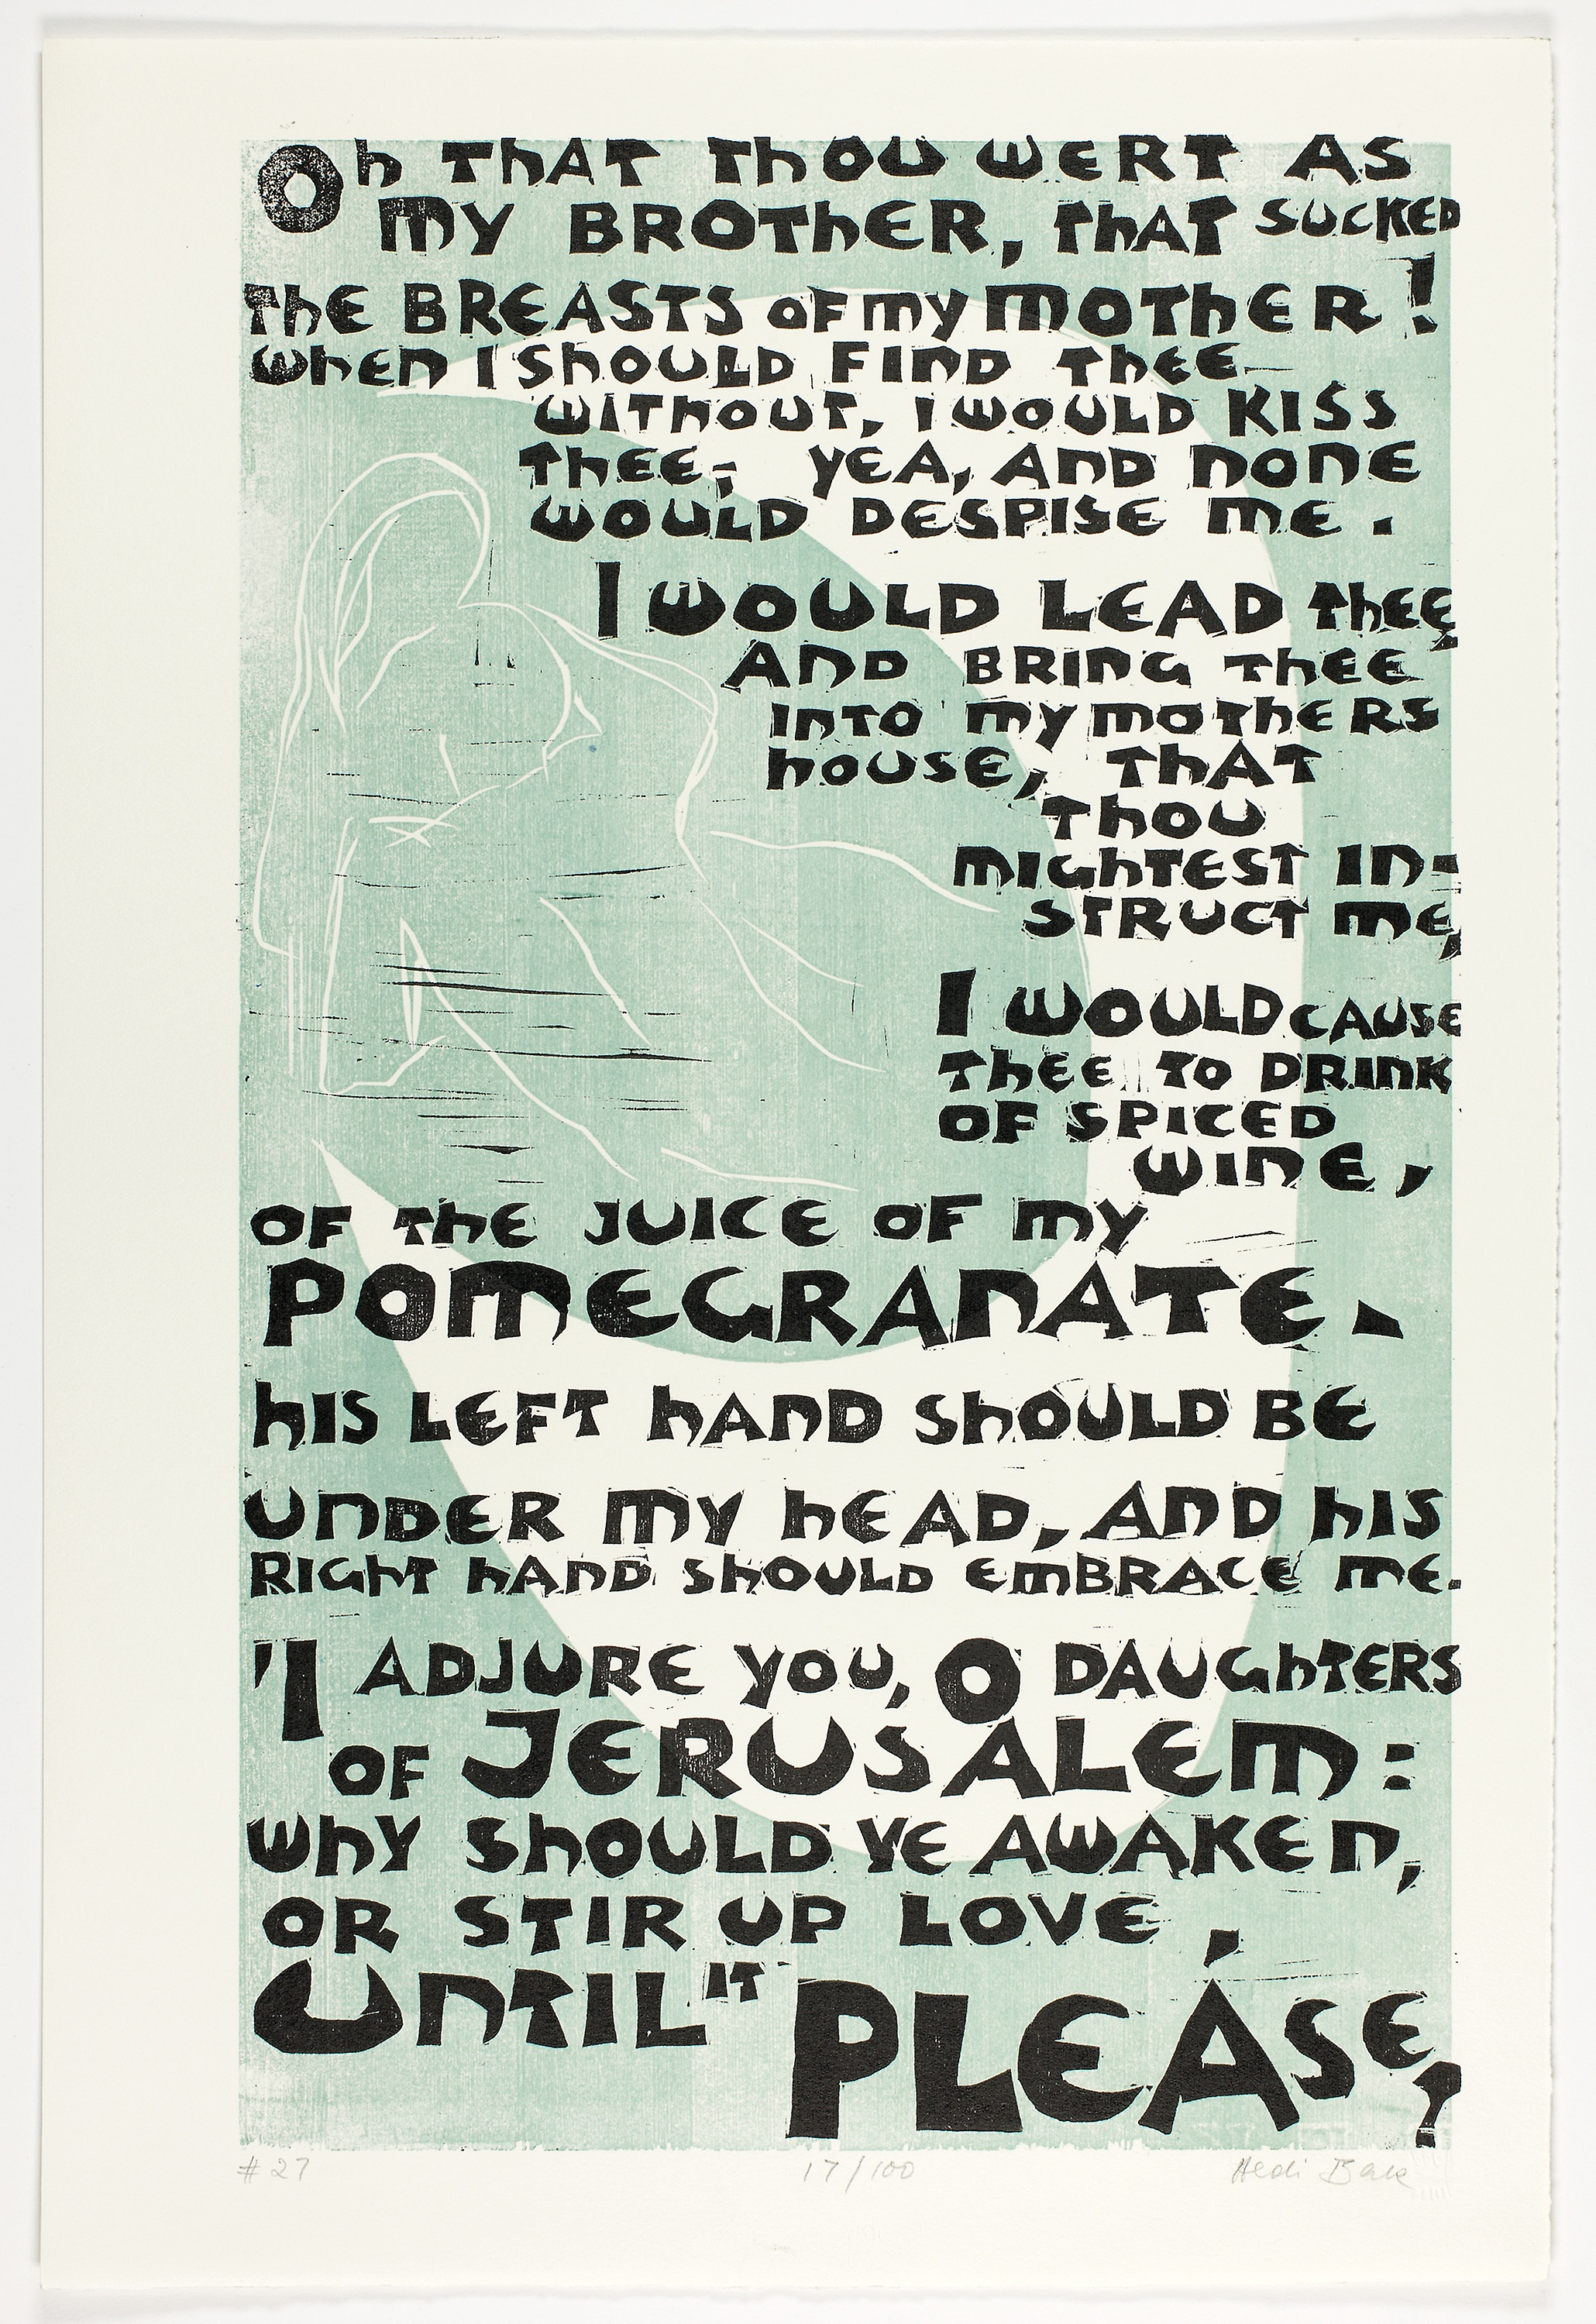 Oh THAT THOU WERT AS
MY BROTHER, THAT SUCKED
THE BREASTS OF MY MOTHER!
WHEN I SHOULD FIND THEE
WITHOUT, I WOULD KISS
THEE; YEA, AND NONE
WOULD DESPISE ME.
I WOULD LEAD THEE,
AND BRING THEE
INTO MY MOTHERS
HOUSE, THAT
THOU
MIGHTEST IN-
STRUCT ME,
I WOULD CAUSE
THEE TO DRINK
OF SPICED
WINE,
OF THE JUICE OF MY
POMEGRANATE.
HIS LEFT HAND SHOULD BE
UNDER MY HEAD, AND HIS
RIGHT HAND SHOULD EMBRACE ME.
'I ADJURE YOU, O DAUGHTERS
OF JERUSALEM:
WHY SHOULD YE AWAKEN,
OR STIR UP LOVE,
UNTIL IT PLEASE?
#27 17/100 Hedi Bak